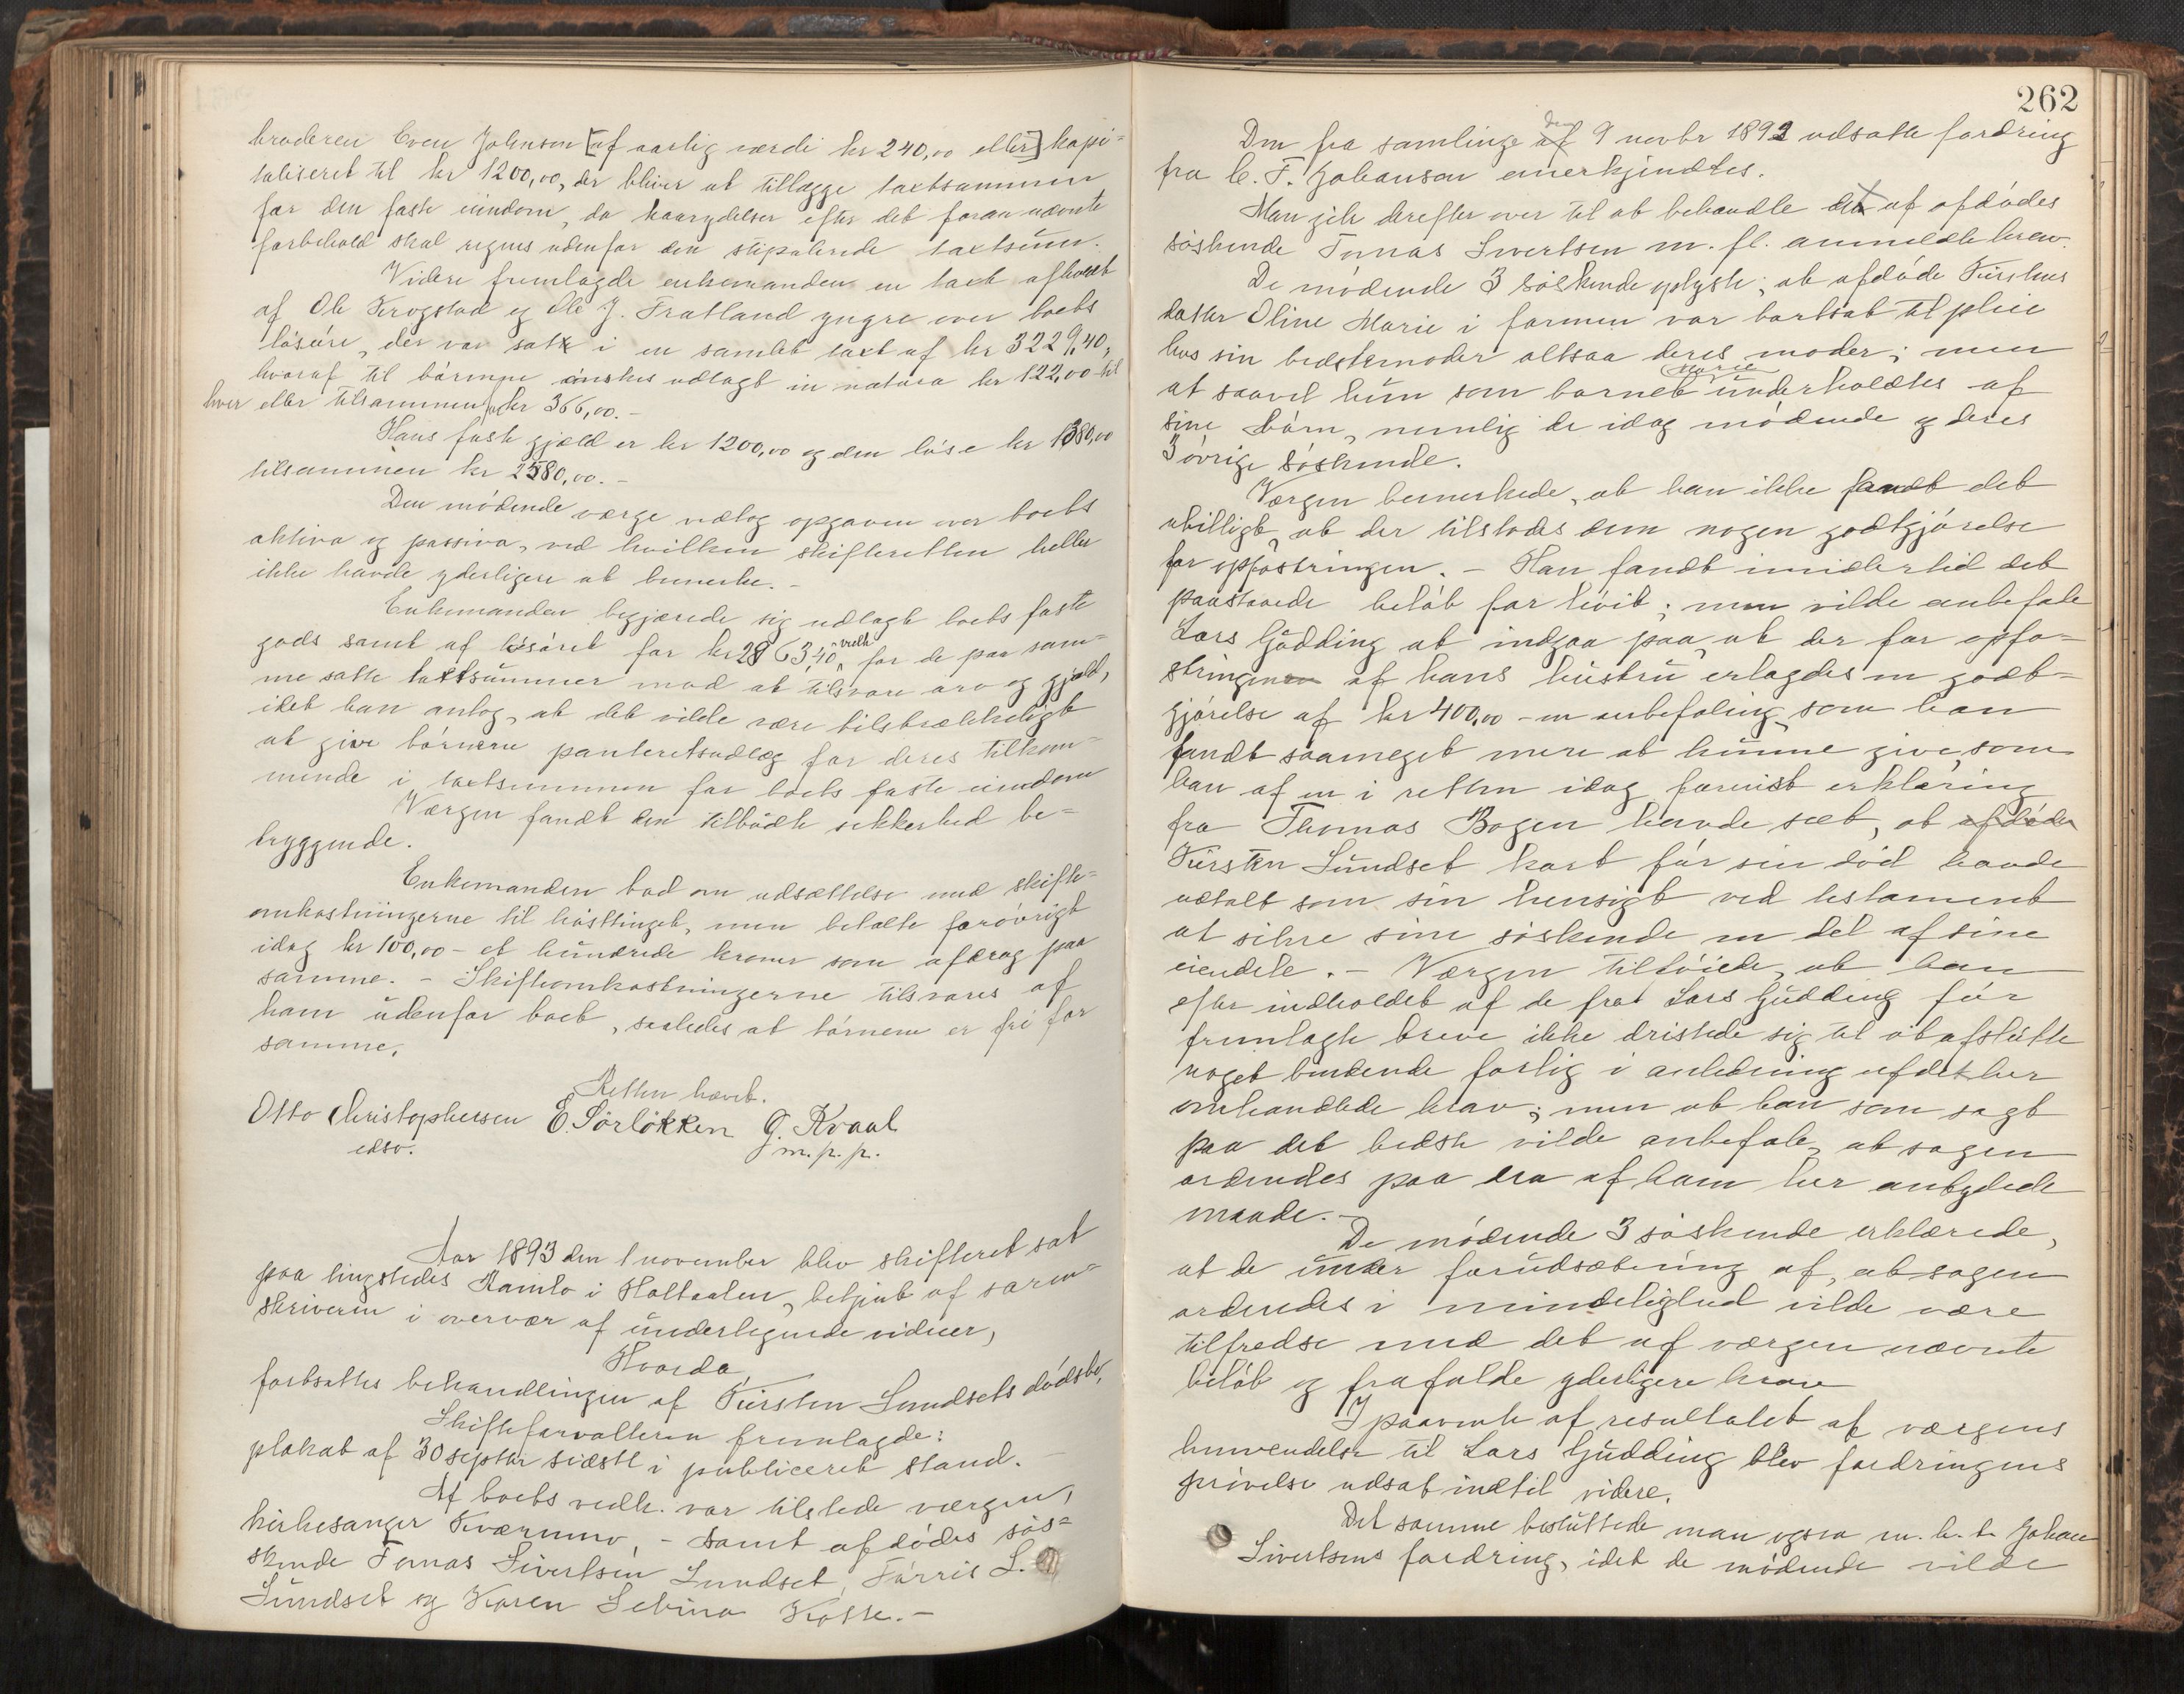 broderen Even Johnson [af aarlig værdi kr 240,00 eller] kapi=
taliseret til kr 1200,00, der bliver at tillægge taxtsummen
for den faste eiendom, da kaarydelser efter det foran nævnte
forbehold skal regnes udenfor den stipulerede taxtsum.
Videre fremlagde enkemanden en taxt afholdt
af Ole Krogstad og Ole J. Fratland yngre over boets
løsøre, der var sat i en samlet taxt af kr 3229,40,
hvoraf til børnene ønskes udlagt in natura kr 122,00 til
hver eller tilsammen kr 366,00.-
Hans faste gjæld er kr 1200,00 og den løse kr 1380,00
tilsammen kr 2580,00.-
Den mødende værge vedtog opgaven over boets
aktiva og passiva, ved hvilken skifteretten heller
ikke havde yderligere at bemerke.-
Enkemanden begjærede sig udlagt boets faste
gods samt af løsøret for kr 2863,40 for de paa sam=
me satte taxtsummer mod at tilsvare arv og gjæld,
idet han antog, at det vilde være tilstrækkeligt
at give børnene panteretsudlæg for deres tilkom=
mende i taxtsummen for boets faste eiendom
Værgen fandt den tilbudte sikkerhed be=
tryggende.
Enkemanden bad om udsættelse med skifte=
omkostningerne til høsttinget, men betalte forøvrigt
idag kr 100,00 - et hundrede kroner som afdrag paa
samme. - Skifteomkostningerne tilsvares af
ham udenfor boet, saaledes at børnene er fri for
samme.
Retten hævet.
Otto Christophersen E. Sørløkken G. Kvaal
edsv. m. p. p.
Aar 1893 den 1 november blev skifteret sat
paa tingstedet Ramlo i Holtaalen, betjent af soren=
skriveren i overvær af undertegnede vidner,
Hvorda,
fortsattes behandlingen af Kirsten Lundsets dødsbo,
Skifteforvalteren fremlagde:
plakat af 30 septbr sidste i publiceret stand.
Af boets vedk. var tilstede værgen,
kirkesanger Kværnmo, - samt afdødes søs=
kende Tomas Sivertsen Lundset, Tørris S.
Lundset og Karen Sebina Kotte.-
262
Den fra samlinge den 9 novbr 1892 udsatte fordring
fra C. F. Johansen anerkjendtes.
Man gik derefter over til at behandle det af afdødes
søskende Tomas Sivertsen m. fl. anmeldte krav.
De mødende 3 søskende oplyste, at afdøde Kirstens
datter Oline Marie i formen var bortsat til pleie
hos sin bedstemoder altsaa deres moder; men
Marie
at saavel hun som barnet underholdtes af
sine børn, nemlig de idag mødende og deres
3 øvrige søskende.
Værgen bemerkede, at han ikke fandt det
ubilligt, at der tilstodes dem nogen godtgjørelse
for opfostringen. - Han fandt imidlertid det
paastaaede beløb for høit; men vilde anbefale
Lars Gudding at indgaa paa, at der for opfo=
stringen af hans hustru erlagdes en godt=
gjørelse af kr 400,00 - en anbefaling, som han
fandt saameget mere at kunne give, som
han af en i retten idag forevist erklæring
fra Thomas Bogen havde seet, at afdøde
Kirsten Lundset kort før sin død havde
udtalt som sin hensigt ved testament
at sikre sine søskende en del af sine
eiendele. - Værgen tilføiede, at han
efter indholdet af de fra Lars Gudding før
fremlagte breve ikke dristede sig til at afslutte
noget bindende forlig i anledning af det her
omhandlede krav; men at han som sagt
paa det bedste vilde anbefale, at sagen
ordnedes paa den af ham her antydede
maade.-
De mødende 3 søskende erklærede,
at de under forudsætning af, at sagen
ordnedes i mindelighed vilde være
tilfredse med det af værgen nævnte
beløb og frafalde yderligere krav
I paavente af resultatet af værgens
henvendelse til Lars Gudding blev fordringens
prøvelse udsat indtil videre.
Det samme besluttede man ogsaa m. h. t. Johan
Sivertsens fordring, idet de mødende vilde